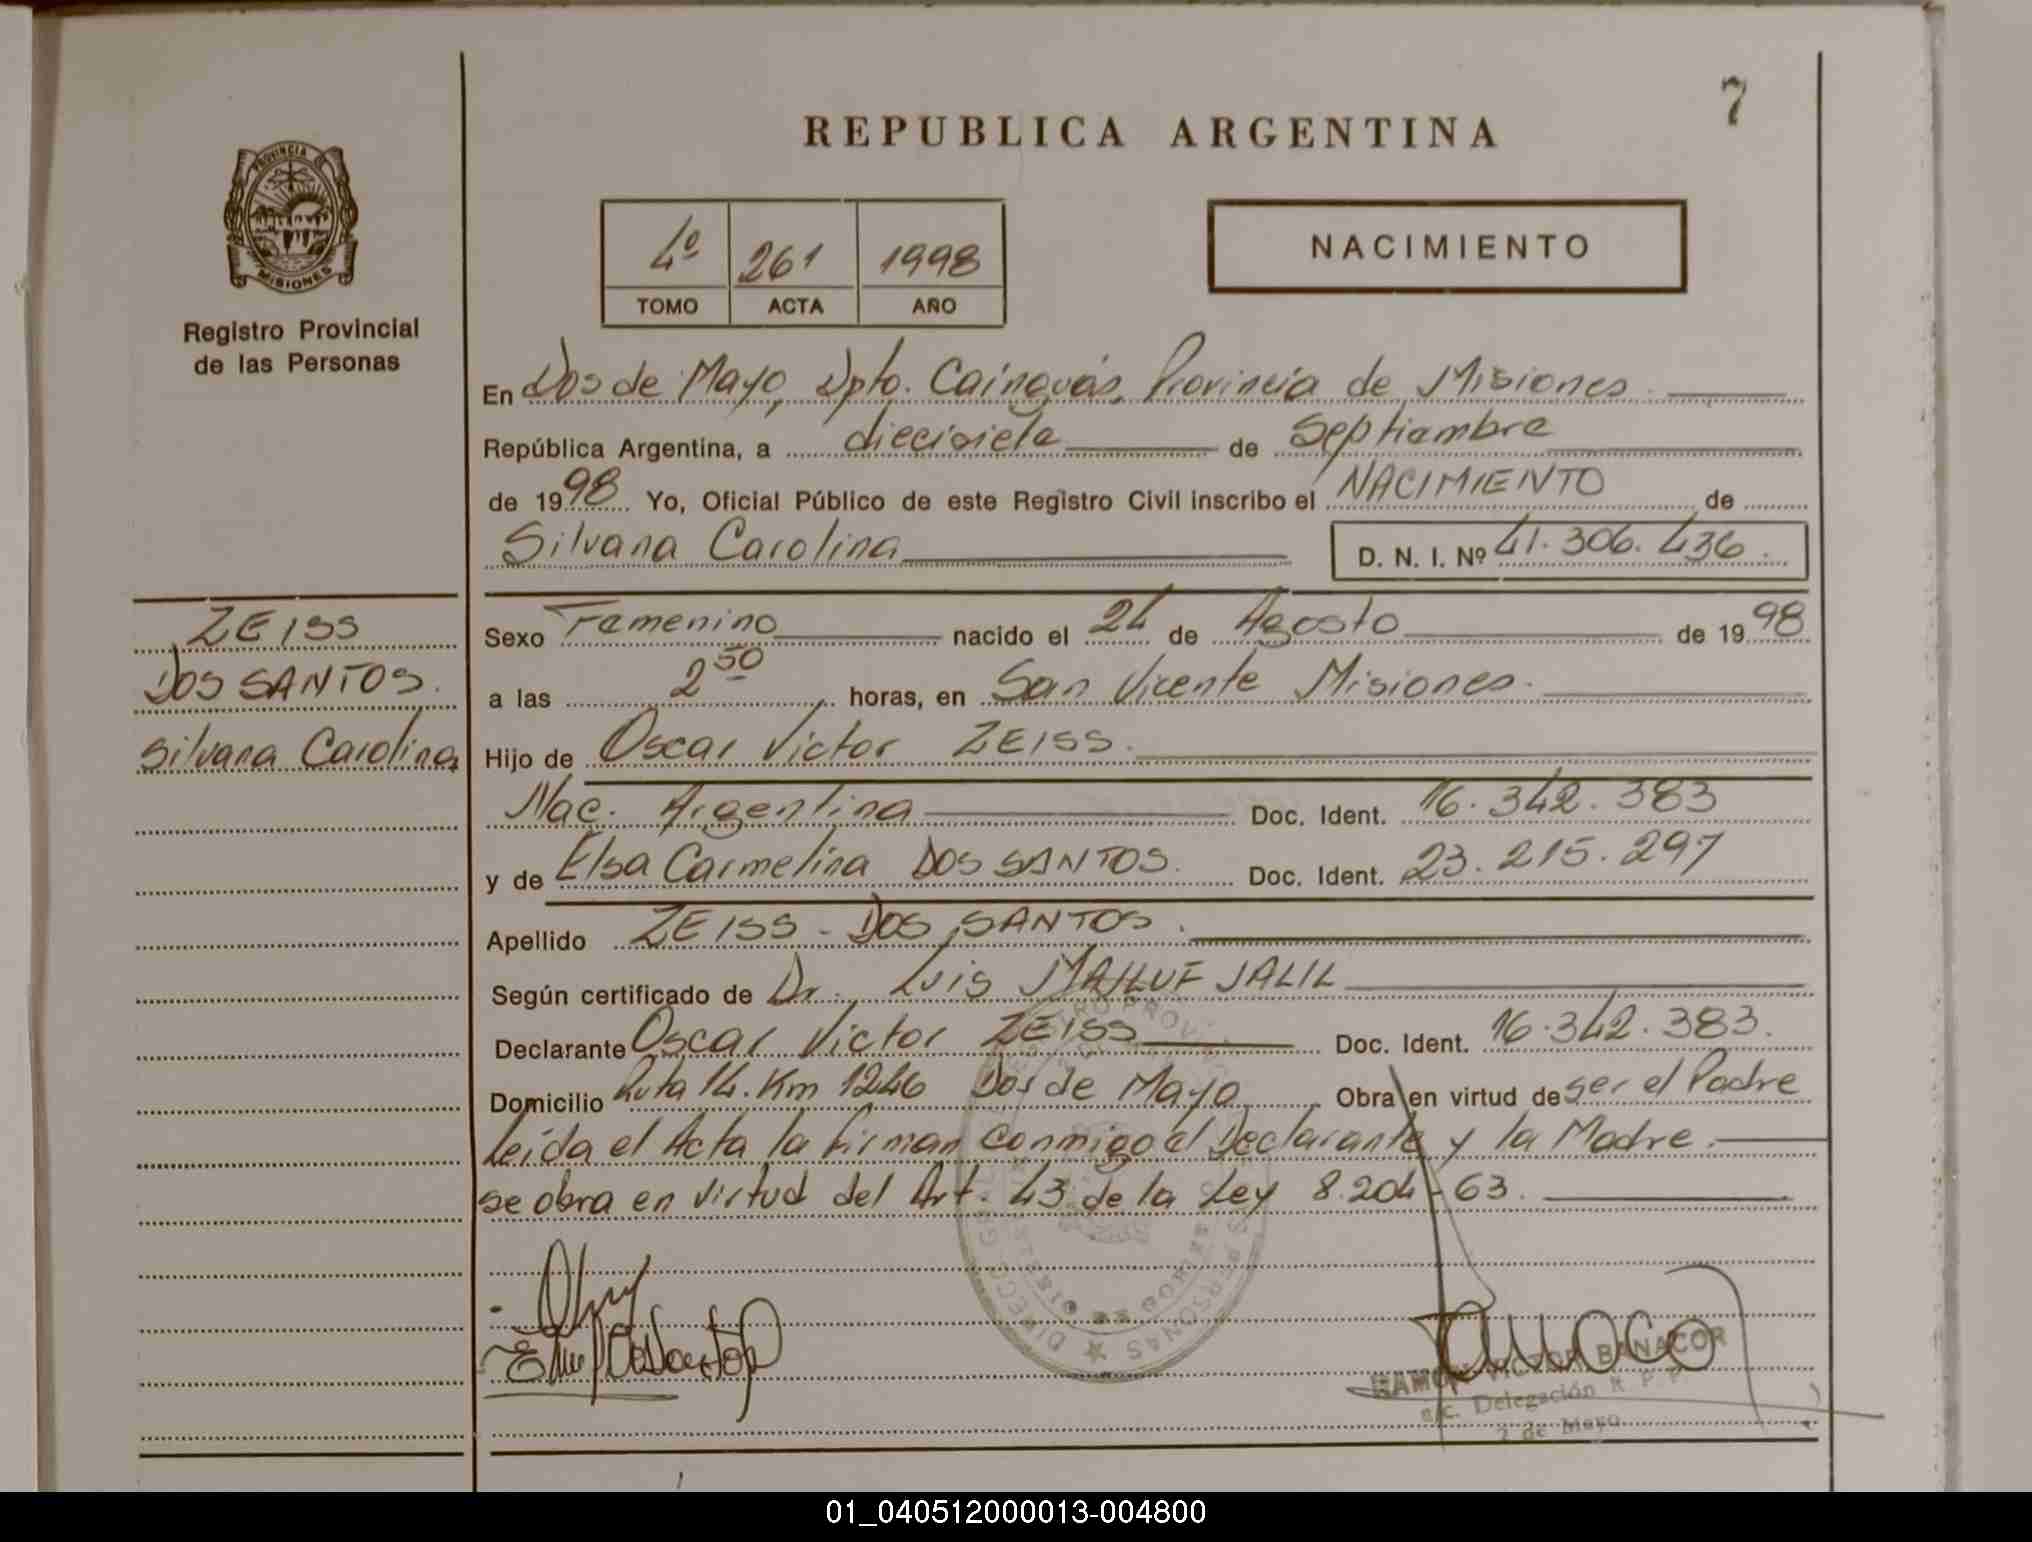 7
REPUBLICA ARGENTINA
PROVINCIA DE
MISIONES
Registro Provincial
de las Personas
4º 261 1998
TOMO ACTA AÑO
NACIMIENTO
En Dos de Mayo, Dpto. Cainguás, Provincia de Misiones.
República Argentina, a diecisiete de Septiembre
de 1998 Yo, Oficial Público de este Registro Civil inscribo el NACIMIENTO de
Silvana Carolina D. N. I. Nº 41.306.436.
ZEISS
DOS SANTOS.
Silvana Carolina
Sexo Femenino nacido el 24 de Agosto de 1998
a las 2 50 horas, en San Vicente Misiones.
Hijo de Oscar Victor ZEISS.
Nac. Argentina Doc. Ident. 16.342.383
y de Elsa Carmelina DOS SANTOS. Doc. Ident. 23.215.297
Apellido ZEISS - DOS SANTOS.
Según certificado de Dr. Luis MAHLUF JALIL
Declarante Oscar Victor ZEISS Doc. Ident. 16.342.383.
Domicilio Ruta 14. Km 1246 Dos de Mayo Obra en virtud de ser el Padre
Leída el Acta la firman conmigo el Declarante y la Madre.
se obra en virtud del Art. 43 de la Ley 8.204-63.
RAMON VICTOR BANACOR
a/c. Delegación R P P
2 de Mayo
01_040512000013-004800